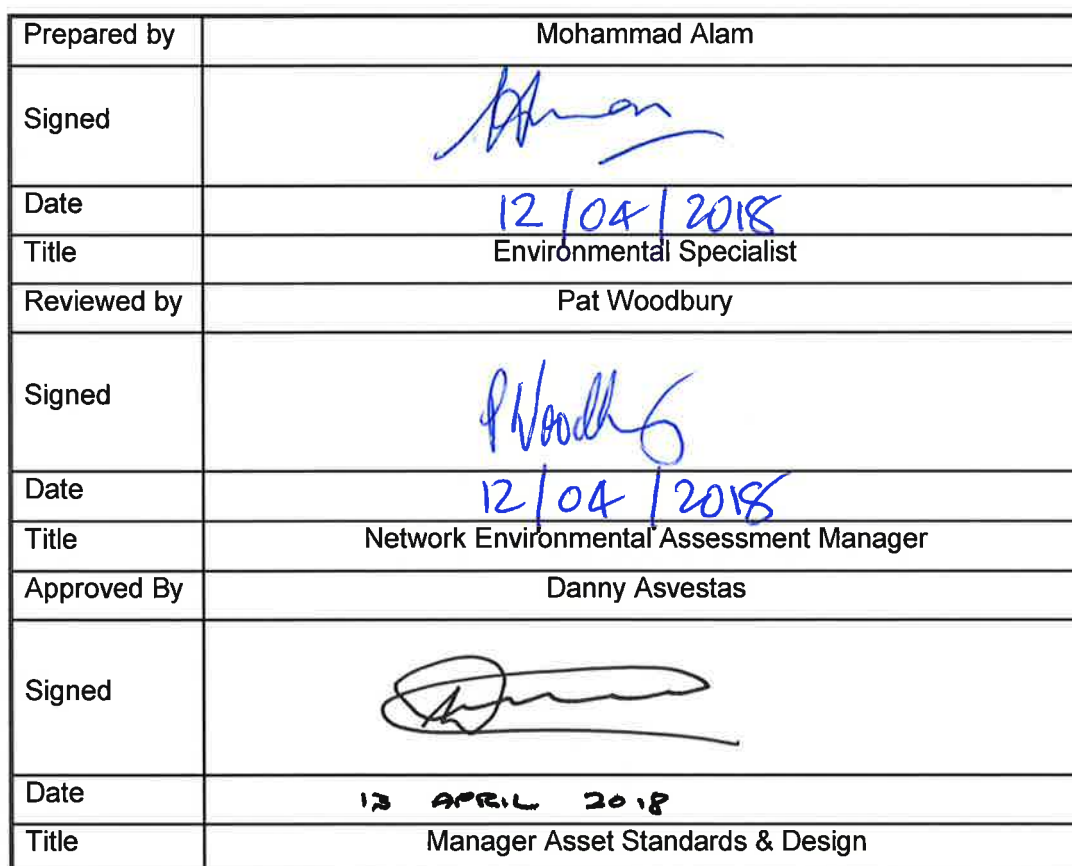 Prepared by Mohammad Alam
Signed
Date 12/04/2018
Title Environmental Specialist
Reviewed by Pat Woodbury
Signed PWoodby
Date 12/04/2018
Title Network Environmental Assessment Manager
Approved By Danny Asvestas
Signed
Date 13 APRIL 2018
Title Manager Asset Standards & Design